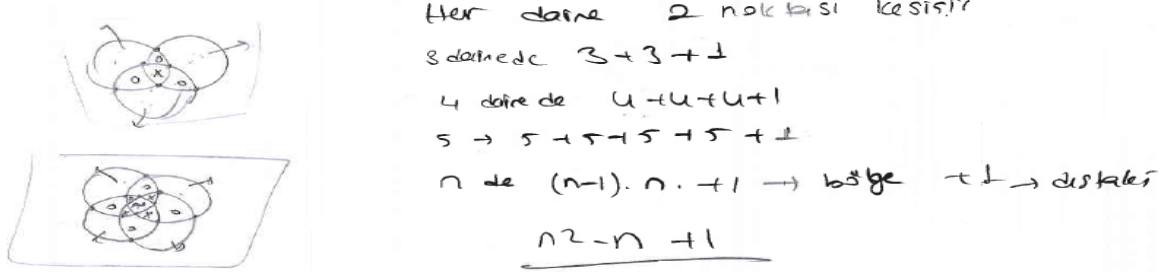 Her daire 2 noktası kesişir
3 dairede 3+3+1
4 daire de 4+4+4+1
5 → 5+5+5+5+1
n de (n-1).n.+1 → bölge +1 → dıştaki
n2-n+1